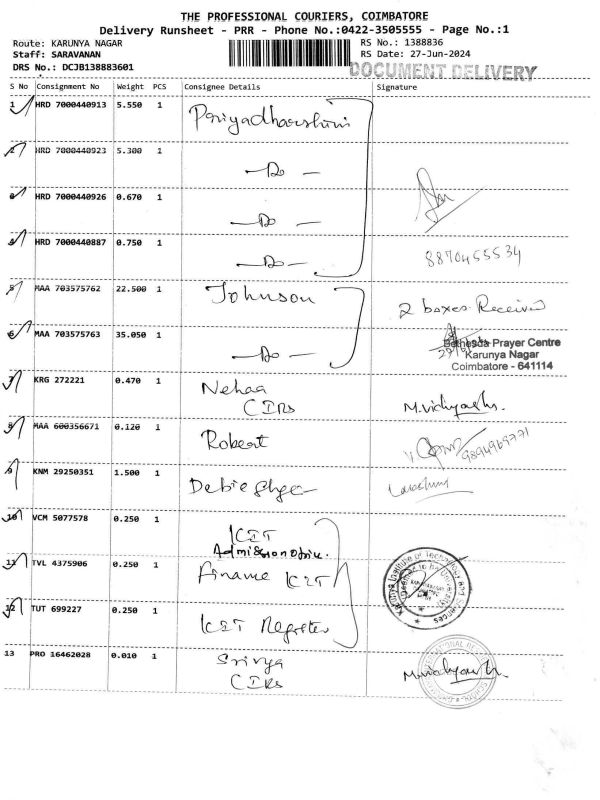 THE PROFESSIONAL COURIERS, COIMBATORE
Delivery Runsheet - PRR - Phone No.:0422-3505555 - Page No.:1
Route: KARUNYA NAGAR RS No.: 1388836
Staff: SARAVANAN RS Date: 27-Jun-2024
DRS No.: DCJB138883601 DOCUMENT DELIVERY
S No Consignment No Weight PCS Consignee Details Signature
1 HRD 7000440913 5.550 1 Periyadharshini
2 HRD 7000440923 5.300 1 - Do -
3 HRD 7000440926 0.670 1 - Do -
4 HRD 7000440887 0.750 1 - Do - 8870455534
5 MAA 703575762 22.500 1 Johnson 2 boxes Received
6 MAA 703575763 35.050 1 - Do - Bethesda Prayer Centre
Karunya Nagar
Coimbatore - 641114
7 KRG 272221 0.470 1 Nehaa
CIRS M.vidhyasha.
8 MAA 600356671 0.120 1 Robert 9894969771
9 KNM 29250351 1.500 1
10 VCM 5077578 0.250 1 KIT
Admission
11 TVL 4375906 0.250 1 Finame KIT
12 TUT 699227 0.250 1 KIT Register
13 PRO 16462028 0.010 1 Srivya
CIRS